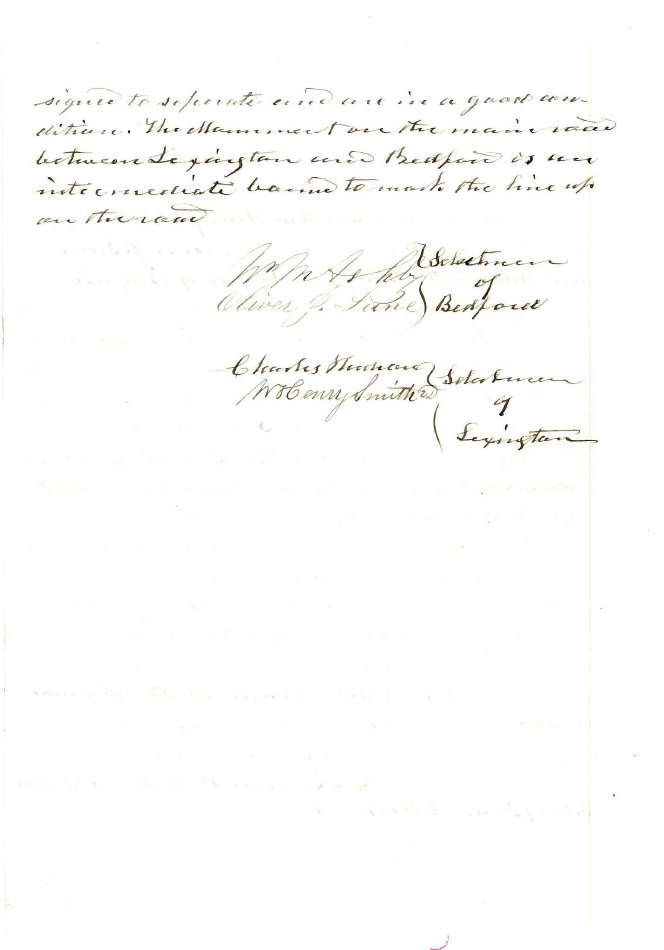 signed to seperate and are in a good con-
dition. The Monument on the main road
between Lexington and Bedford is an
intermediate bound to mark the line up
on the road
Wm M Ashby
Oliver J. Lane
Selectmen
of
Bedford
Charles
W Henry Smith
Selectmen
of
Lexington